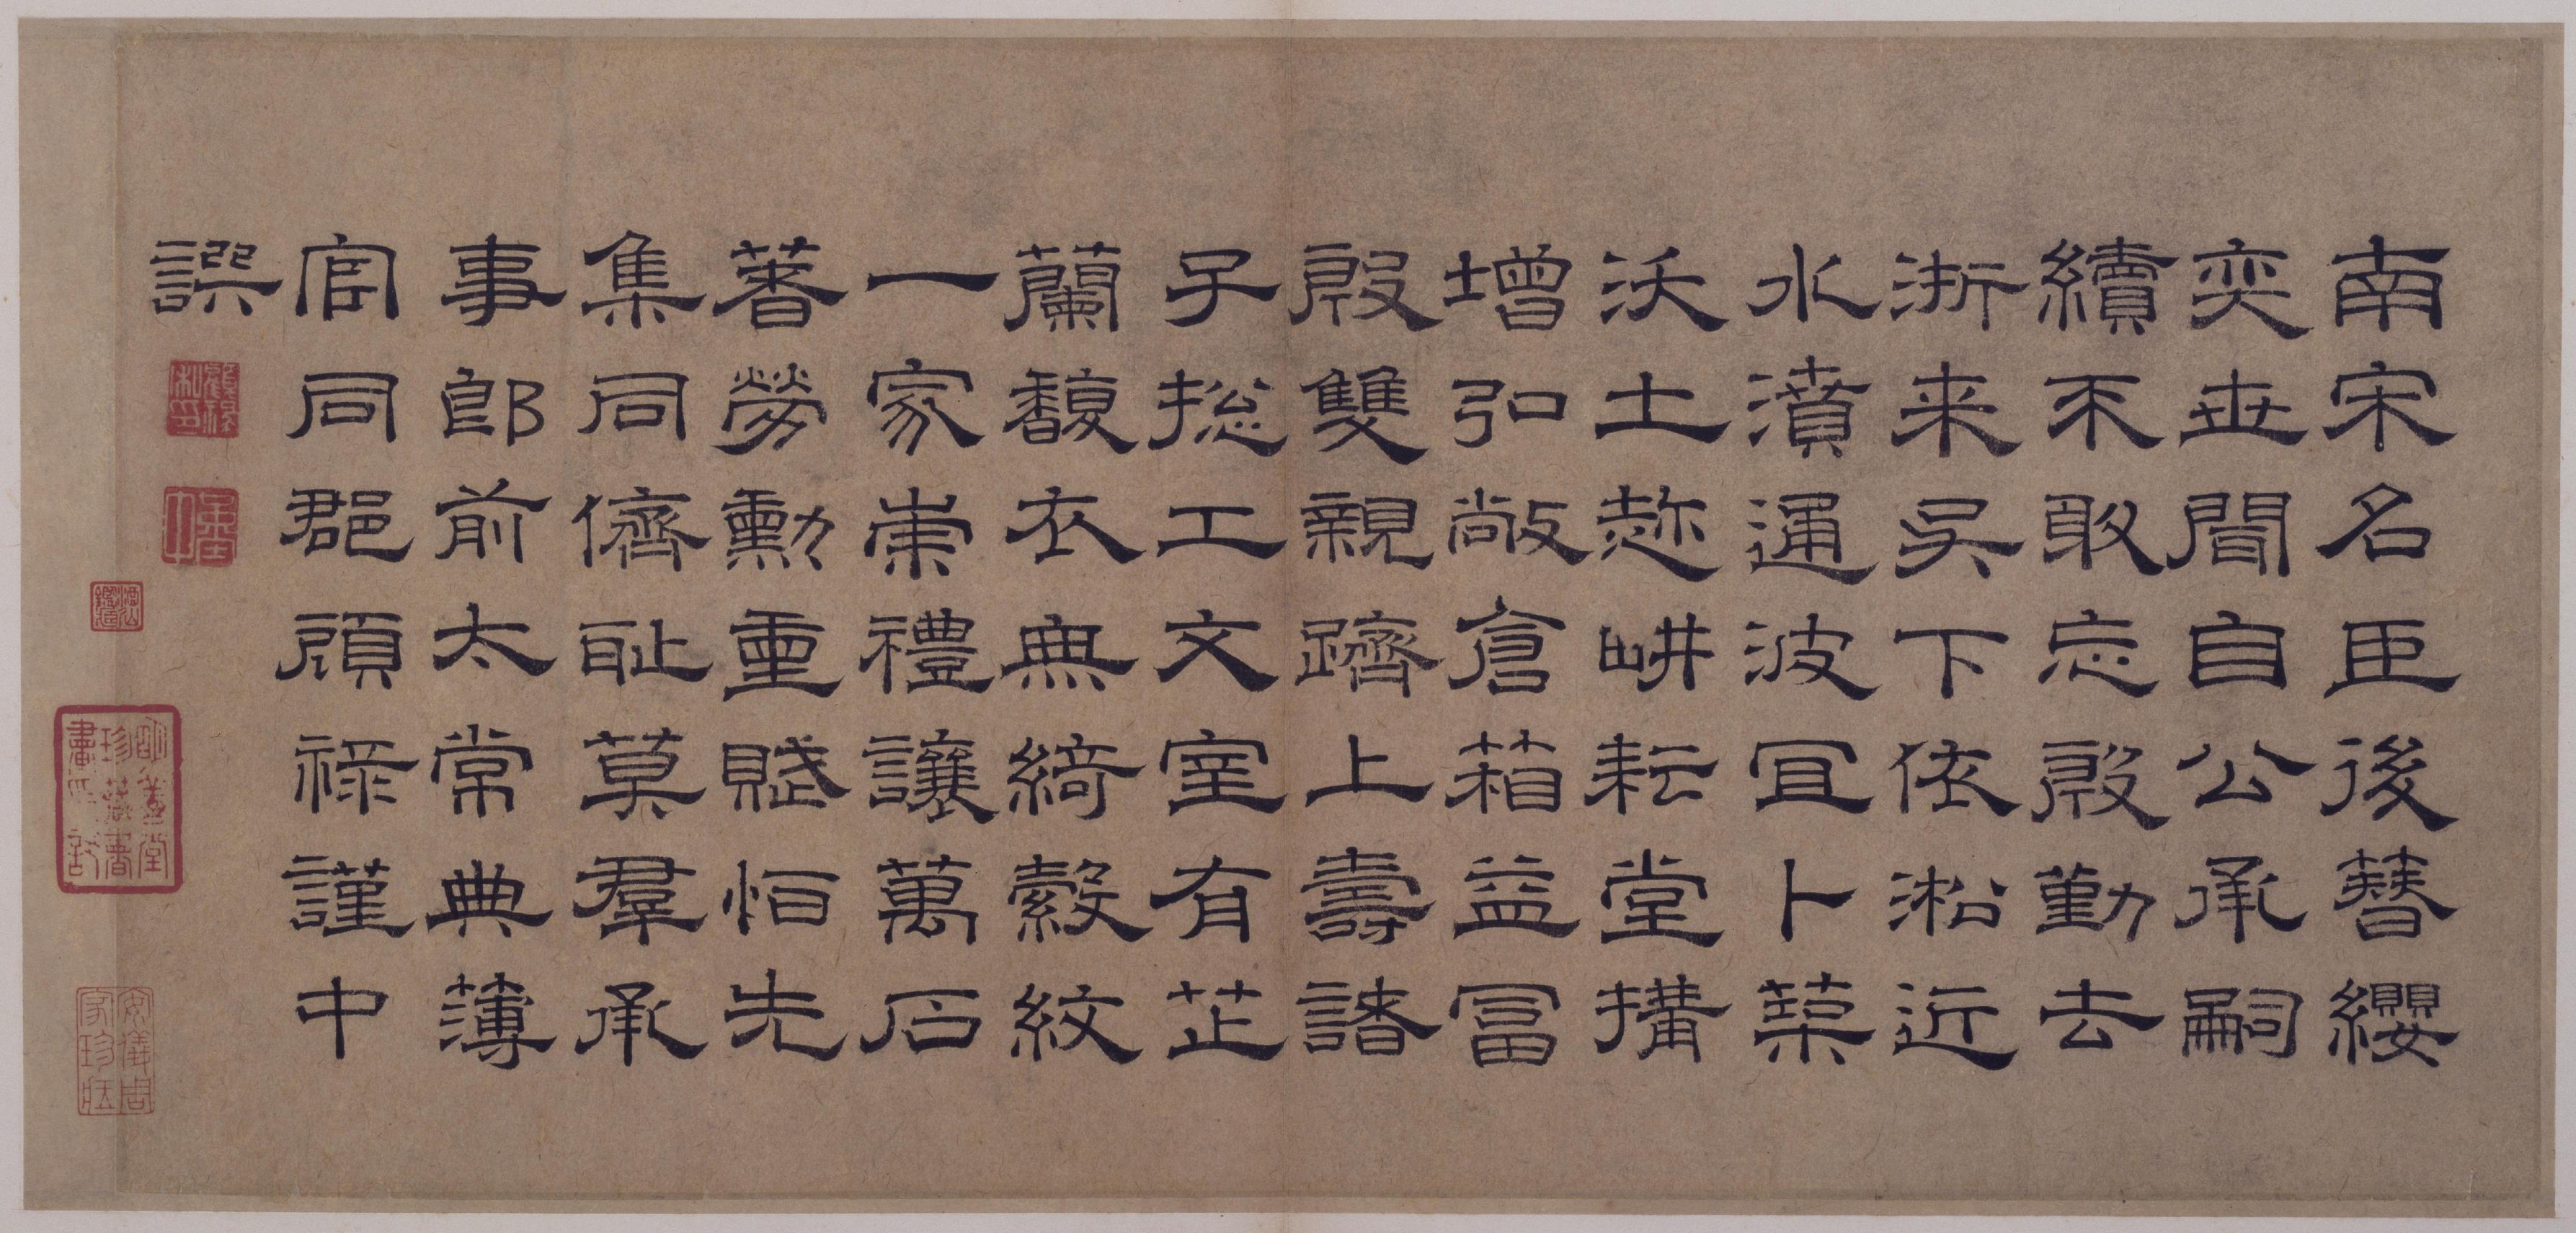 南宋名臣後簪纓
奕世聞自公承嗣
續不敢忘殷勤去
浙来吳下依淞近
水濆通波宜卜築
沃土趂畊耘堂搆
增弘敞倉箱益富
殷雙親躋上壽諸
子捴工文室有芷
蘭馥衣無綺縠紋
一家崇禮讓萬石
蓍勞勳重賦恒先
集同儕耻莫羣承
事郎前太常典簿
宦同郡頋祿謹中
譔
安儀周家珍藏